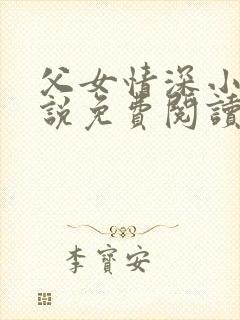 父女情深小
說免費閱讀
李寶安